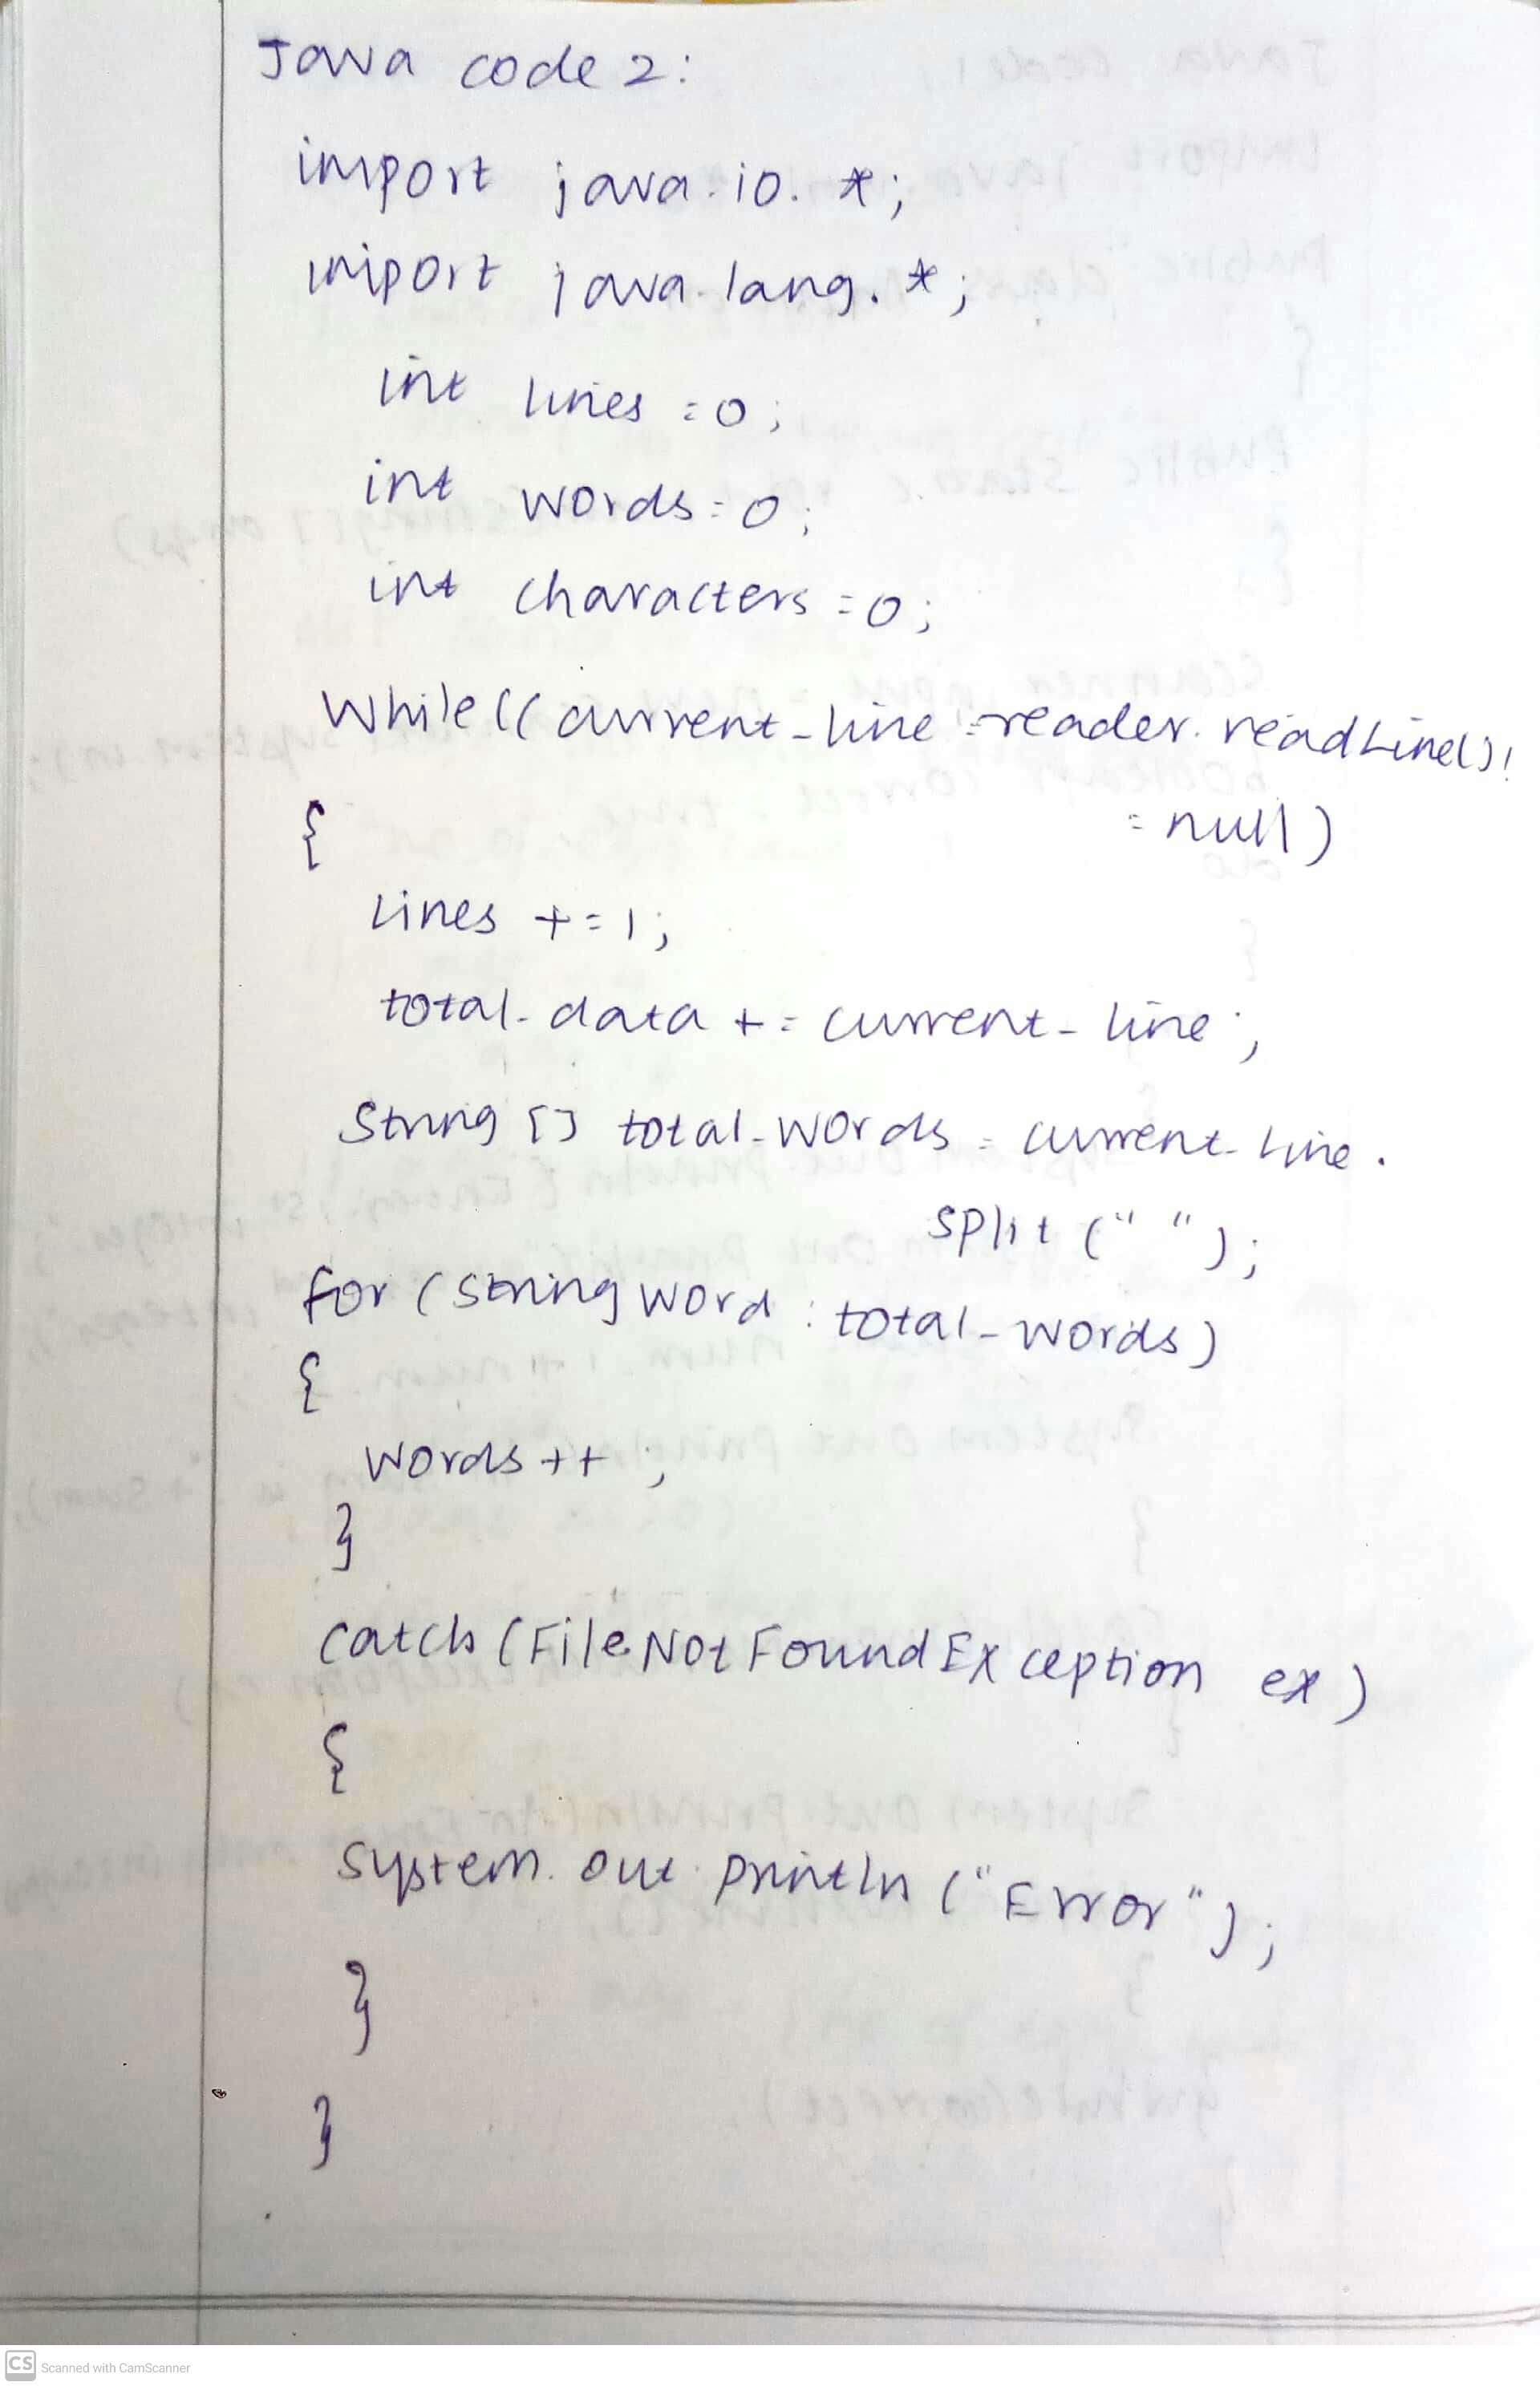 Java code 2:
import java.io.*;
import java.lang.*;
int lines = 0;
int words = 0;
int characters = 0;
while ((current_line = reader.readLine()!
= null)
{
Lines += 1;
total_data += current_line;
String [] total_words = current_line.
split (" ");
for (String word : total_words)
{
words ++;
}
catch (FileNotFoundException ex)
{
System.out.println ("Error");
}
}
CS Scanned with CamScanner